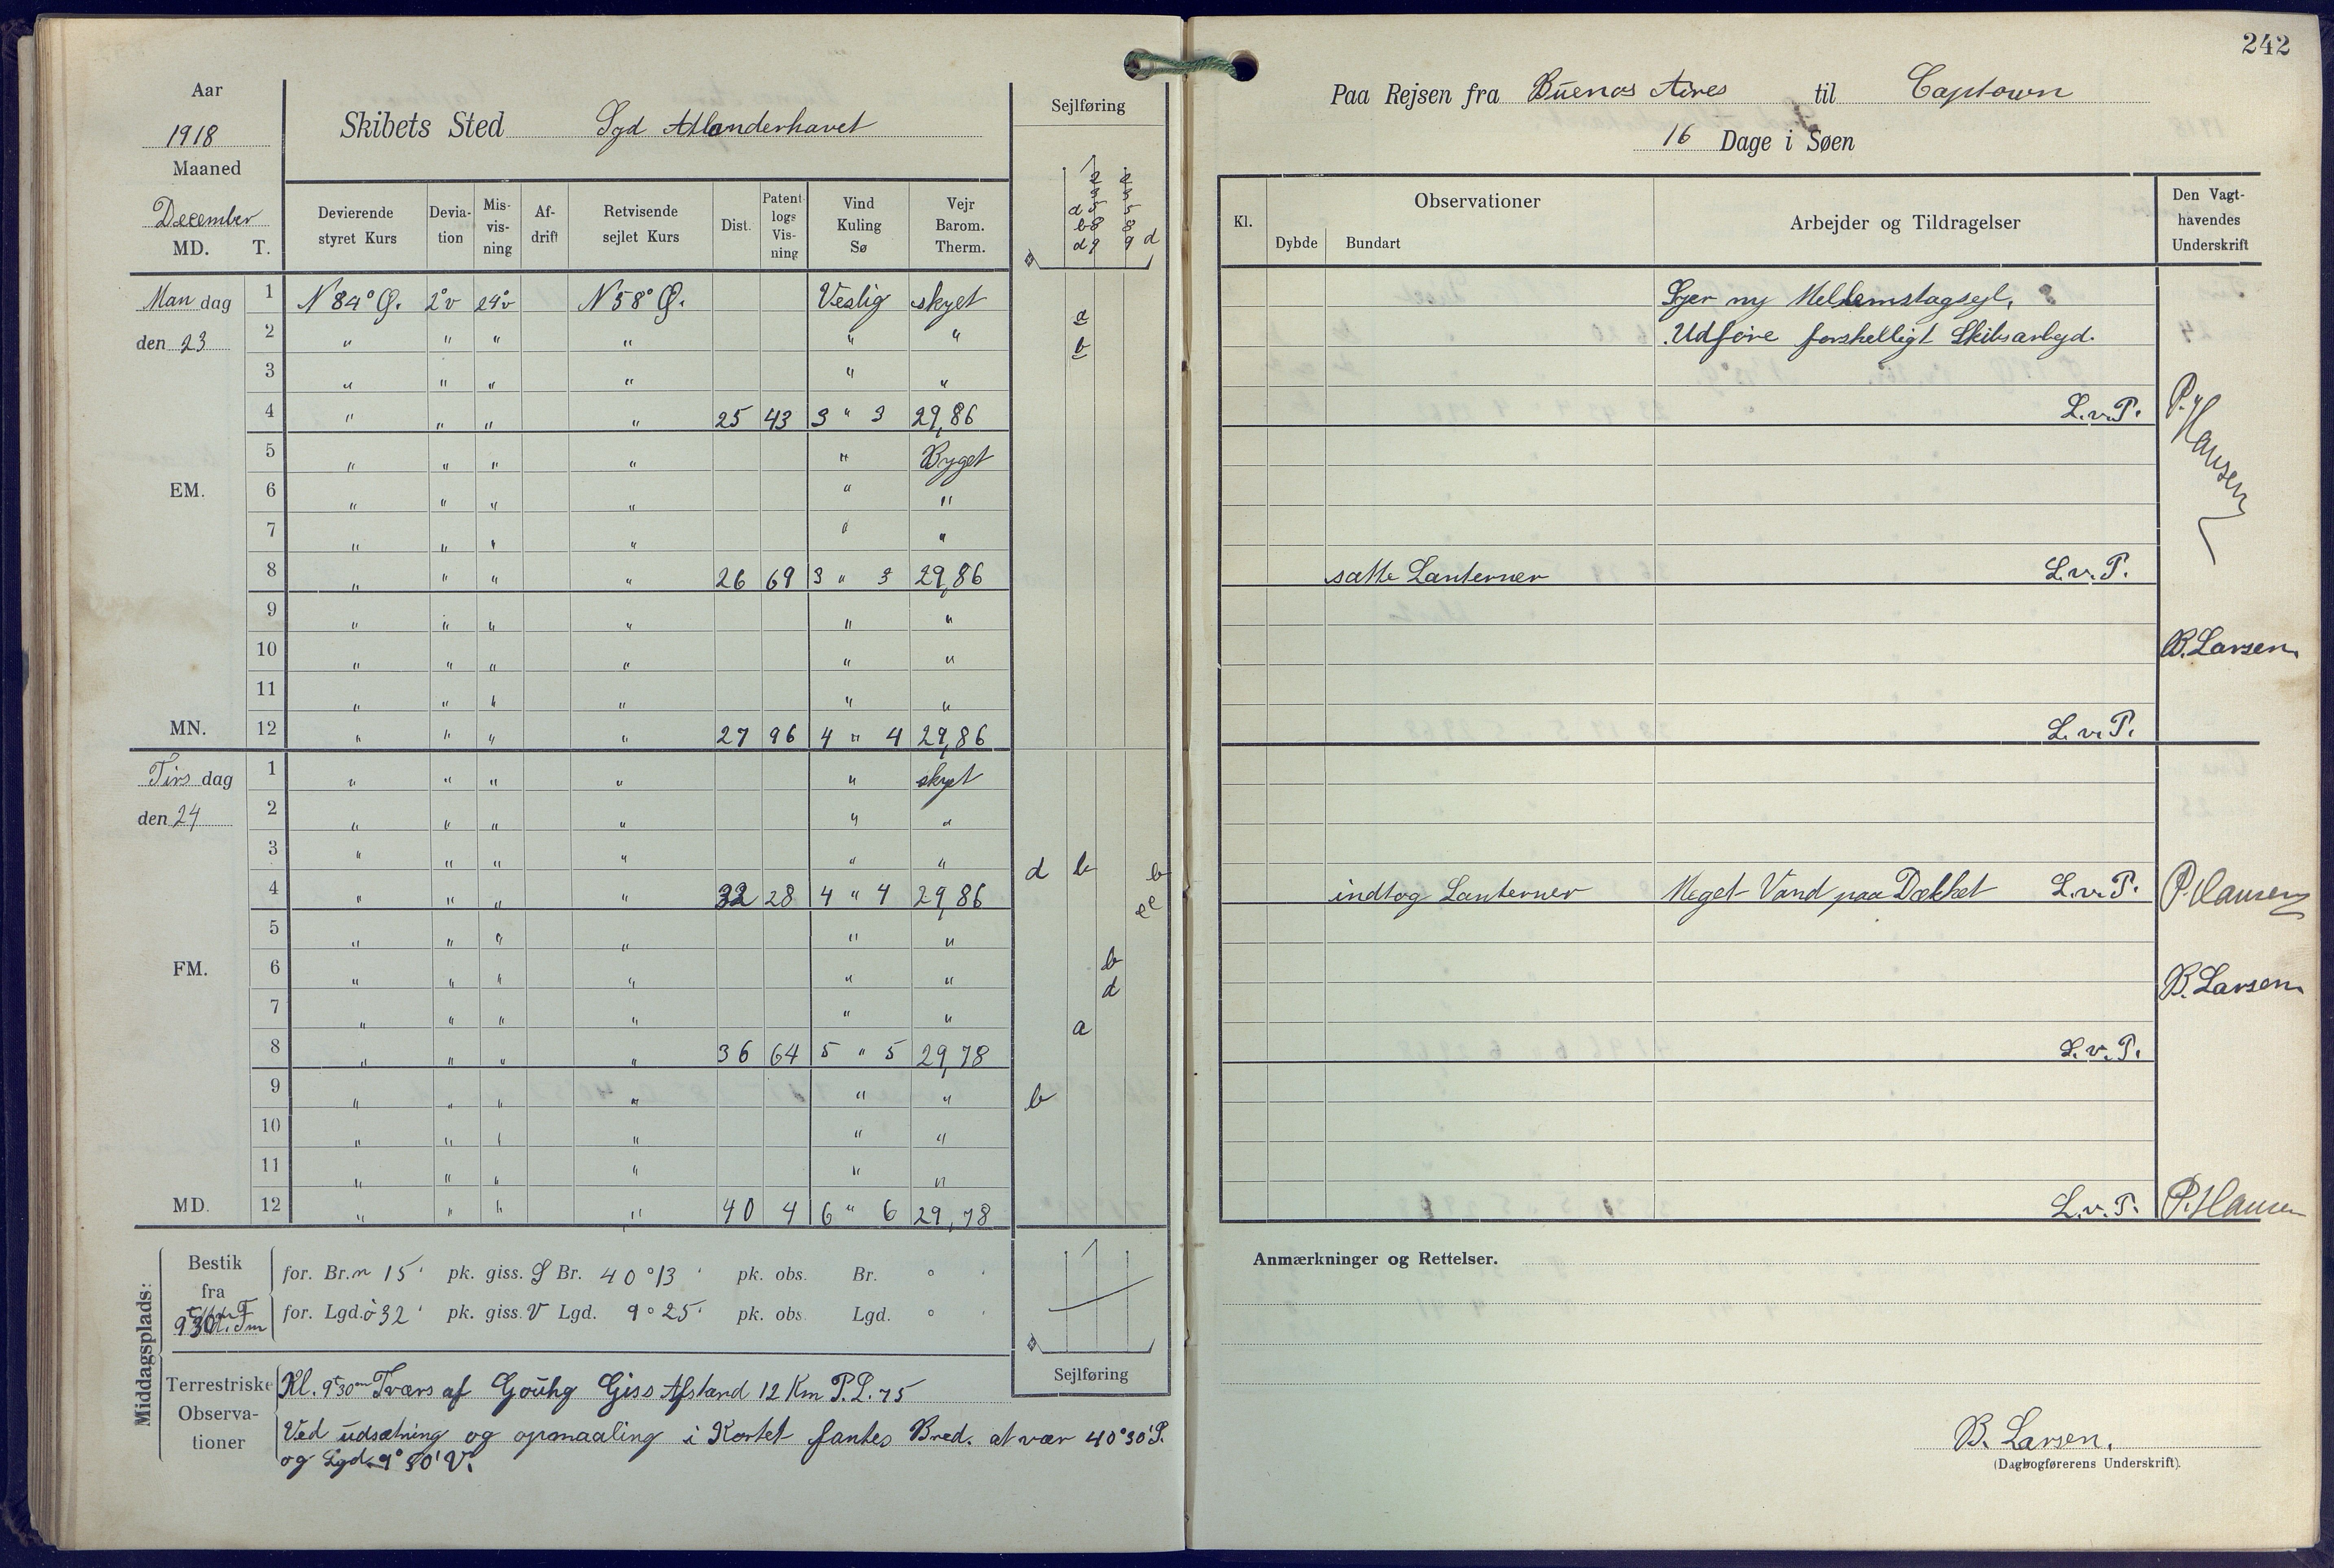 242
Aar
1918
Maaned
December
MD. T.
Skibets Sted Syd Atlanderhavet
Sejlføring
Devierende styret Kurs | Devia-tion | Mis-vis-ning | Af-drift | Retvisende sejlet Kurs | Dist. | Patent-logs Vis-ning | Vind Kuling Sø | Vejr Barom. Therm.
Man dag 1 N 84° Ø. 2°v 24°v N 58° Ø. Vestig skyet
den 23 2 " " " " " " a
b
3 " " " " " "
4 " " " " 25 43 3 " 3 29,86
5 " " " " " Byget
EM. 6 " " " " " "
7 " " " " " "
8 " " " " 26 69 3 " 3 29,86
9 " " " " " "
10 " " " " " "
11 " " " " " "
MN. 12 " " " " 27 96 4 " 4 29,86
Tirs dag 1 " " " " " skyet
den 24 2 " " " " " "
3 " " " " " " d b b
4 " " " " 32 28 4 " 4 29,86 e e
5 " " " " " "
FM. 6 " " " " " " b
d
7 " " " " " " a
8 " " " " 36 64 5 " 5 29,78
9 " " " " " " b
10 " " " " " "
11 " " " " " "
MD. 12 " " " " 40 4 6 " 6 29,78
Middagsplads:
Bestik fra
for. Br. n 15' pk. giss. S Br. 40°13' pk. obs. Br. ° '
for. Lgd. ö 32' pk. giss. V Lgd. 9°25' pk. obs. Lgd. ° '
Sejlføring
Terrestriske Observa-tioner
Kl. 9t30m Tværs af Gouhg Giss Afstand 12 Km P.L. 75
Ved udsætning og opmaaling i Kortet fantes Bred. at vær 40°30'S.
og Lgd. 9°50' V.
Paa Rejsen fra Buenos Aires til Captown
16 Dage i Søen
Kl. | Observationer | Dybde | Bundart | Arbejder og Tildragelser | Den Vagt-havendes Underskrift
Syer ny Mellemstagsejl.
Udføre forskelligt Skibsarbejd.
L.v.P. P. Hansen
satte Lanterner L.v.P.
B. Larsen
L.v.P.
indtog Lanterner Meget Vand paa Dækket L.v.P. P. Hansen
B. Larsen
L.v.P.
L.v.P. P. Hansen
Anmærkninger og Rettelser.
B. Larsen.
(Dagbogførerens Underskrift).